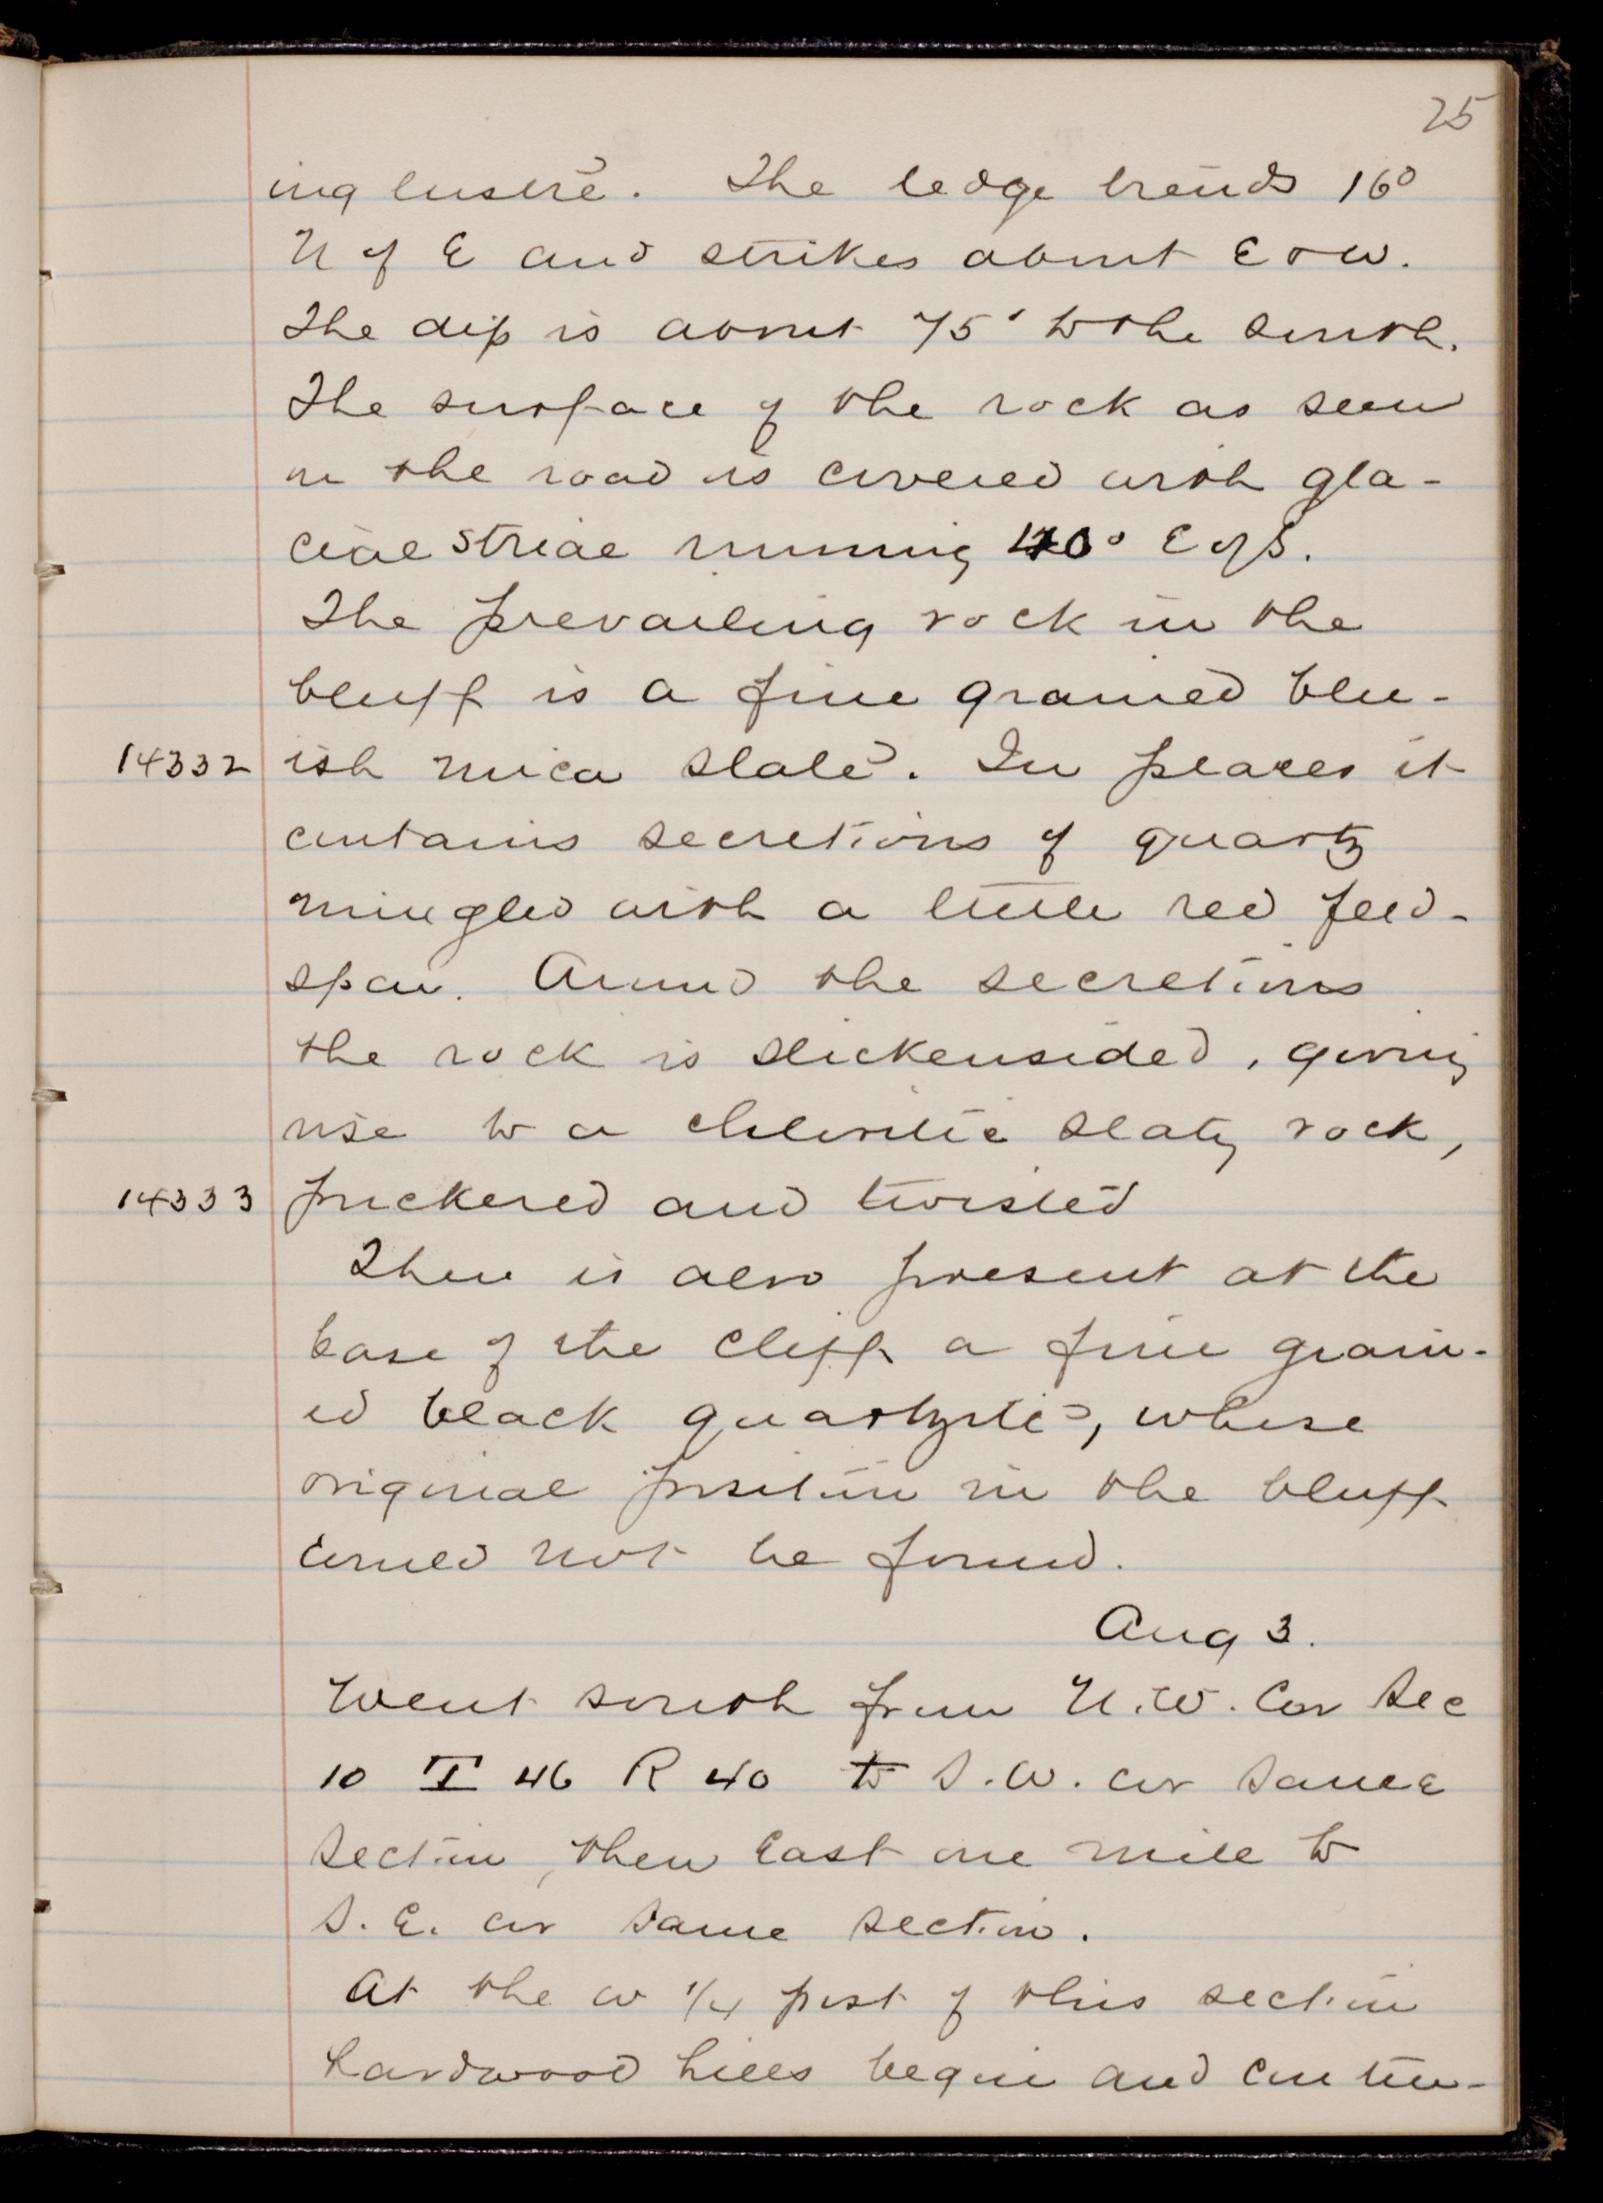 25
ing lustre. The ledge trends 16°
N of E and strikes about E & W.
The dip is about 75° to the south.
The surface of the rock as seen
in the road is covered with gla-
cial striae running 40° E of S.
The prevailing rock in the
bluff is a fine grained blu-
14332 ish mica slate. In places it
contains secretions of quartz
mingled with a little red feld-
spar. Around the secretions
the rock is slickensided, giving
rise to a chloritic slaty rock,
14333 puckered and twisted
There is also present at the
base of the cliff a fine grain-
ed black quartzite, whose
original position in the bluff
could not be found.
Aug 3.
Went south from N.W. Cor Sec
10 T 46 R 40 to S.W. cor same
section, then East one mile to
S. E. cor same section.
At the W 1/4 post of this section
hardwood hills begin and contin-